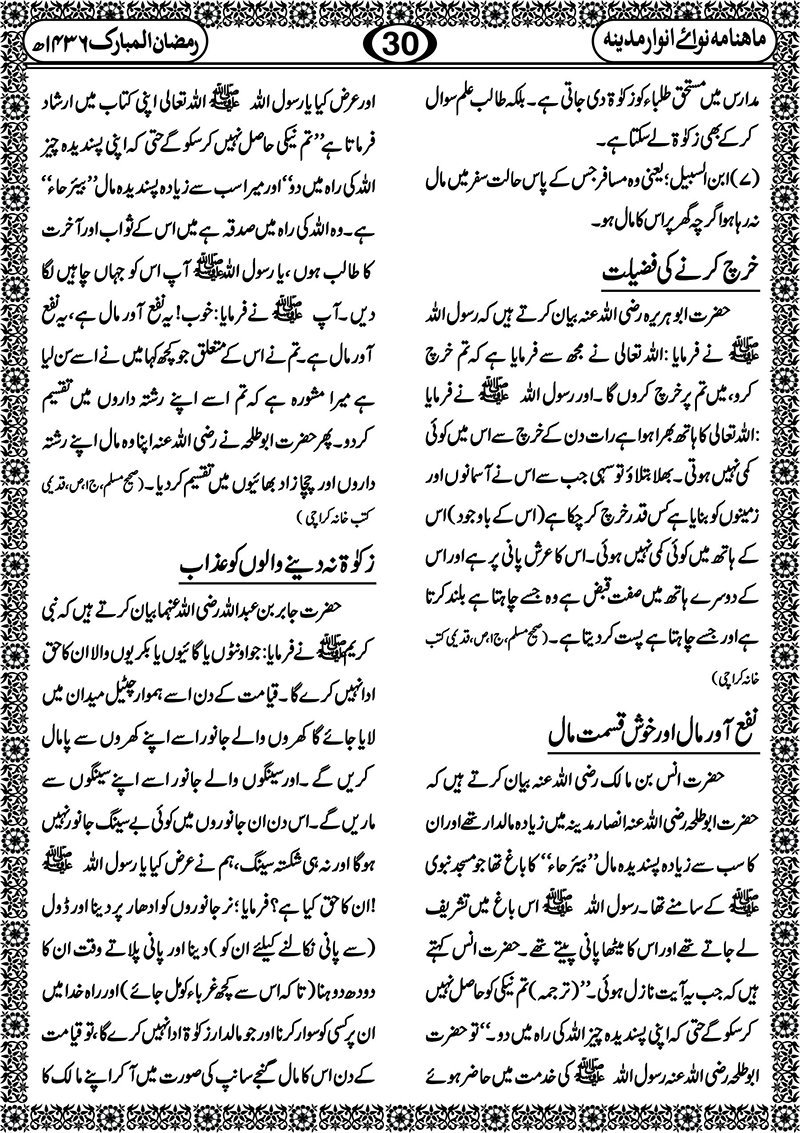 ماہنامہ نوائے انوار مدینہ
30
رمضان المبارک ۱۴۳۶ھ
مدارس میں مستحق طلباء کو زکوٰۃ دی جاتی ہے۔ بلکہ طالب علم سوال
کر کے بھی زکوٰۃ لے سکتا ہے۔
(۷) ابن السبیل؛ یعنی وہ مسافر جس کے پاس حالت سفر میں مال
نہ رہا ہو اگرچہ گھر پر اس کا مال ہو۔
خرچ کرنے کی فضیلت
حضرت ابو ہریرہ رضی اللہ عنہ بیان کرتے ہیں کہ رسول اللہ
ﷺ نے فرمایا :اللہ تعالی نے مجھ سے فرمایا ہے کہ تم خرچ
کرو، میں تم پر خرچ کروں گا ۔اور رسول اللہ ﷺ نے فرمایا
:اللہ تعالی کا ہاتھ بھرا ہوا ہے رات دن کے خرچ سے اس میں کوئی
کمی نہیں ہوتی ۔بھلا بتلاؤ تو سہی جب سے اس نے آسمانوں اور
زمینوں کو بنایا ہے کس قدر خرچ کر چکا ہے (اس کے باوجود) اس
کے ہاتھ میں کوئی کمی نہیں ہوئی۔ اس کا عرش پانی پر ہے اور اس
کے دوسرے ہاتھ میں صفت قبض ہے وہ جسے چاہتا ہے بلند کرتا
ہے اور جسے چاہتا ہے پست کر دیتا ہے۔ (صحیح مسلم، ج۱، ص، قدیمی کتب
خانہ کراچی)
نفع آور مال اور خوش قسمت مال
حضرت انس بن مالک رضی اللہ عنہ بیان کرتے ہیں کہ
حضرت ابو طلحہ رضی اللہ عنہ انصار مدینہ میں زیادہ مالدار تھے اور ان
کا سب سے زیادہ پسندیدہ مال ’’بیئر حاء‘‘ کا باغ تھا جو مسجد نبوی
ﷺ کے سامنے تھا ۔رسول اللہ ﷺ اس باغ میں تشریف
لے جاتے تھے اور اس کا میٹھا پانی پیتے تھے ۔حضرت انس کہتے
ہیں کہ جب یہ آیت نازل ہوئی۔’’(ترجمہ) تم نیکی کو حاصل نہیں
کرسکو گے حتی کہ اپنی پسندیدہ چیز اللہ کی راہ میں دو۔‘‘ تو حضرت
ابو طلحہ رضی اللہ عنہ رسول اللہ ﷺ کی خدمت میں حاضر ہوئے
اور عرض کیا یارسول اللہ ﷺ اللہ تعالی اپنی کتاب میں ارشاد
فرماتا ہے ’’تم نیکی حاصل نہیں کر سکو گے حتی کہ اپنی پسندیدہ چیز
اللہ کی راہ میں دو‘‘ اور میرا سب سے زیادہ پسندیدہ مال ’’بیئر حاء‘‘
ہے ۔وہ اللہ کی راہ میں صدقہ ہے میں اس کے ثواب اور آخرت
کا طالب ہوں ،یا رسول اللہ ﷺ آپ اس کو جہاں چاہیں لگا
دیں ۔آپ ﷺ نے فرمایا: خوب! یہ نفع آور مال ہے، یہ نفع
آور مال ہے۔ تم نے اس کے متعلق جو کچھ کہا میں نے اسے سن لیا
ہے میرا مشورہ ہے کہ تم اسے اپنے رشتہ داروں میں تقسیم
کر دو ۔پھر حضرت ابو طلحہ نے رضی اللہ عنہ اپنا وہ مال اپنے رشتہ
داروں اور چچا زاد بھائیوں میں تقسیم کر دیا ۔(صحیح مسلم، ج۱، ص، قدیمی
کتب خانہ کراچی )
زکوٰۃ نہ دینے والوں کو عذاب
حضرت جابر بن عبداللہ رضی اللہ عنہما بیان کرتے ہیں کہ نبی
کریم ﷺ نے فرمایا: جو اونٹوں یا گائیوں یا بکریوں والا ان کا حق
ادا نہیں کرے گا ۔قیامت کے دن اسے ہموار چٹیل میدان میں
لایا جائے گا کھروں والے جانور اسے اپنے کھروں سے پامال
کریں گے ۔اور سینگوں والے جانور اسے اپنے سینگوں سے
ماریں گے۔ اس دن ان جانوروں میں کوئی بے سینگ جانور نہیں
ہوگا اور نہ ہی شکستہ سینگ، ہم نے عرض کیا یا رسول اللہ ﷺ
!ان کا حق کیا ہے؟ فرمایا؛ نر جانوروں کو ادھار پر دینا اور ڈول
(سے پانی نکالنے کیلئے ان کو) دینا اور پانی پلاتے وقت ان کا
دودھ دوہنا (تاکہ اس سے کچھ غرباء کو مل جائے) اور راہ خدا میں
ان پر کسی کو سوار کرنا اور جو مالدار زکوٰۃ ادا نہیں کرے گا، تو قیامت
کے دن اس کا مال گنجے سانپ کی صورت میں آ کر اپنے مالک کا